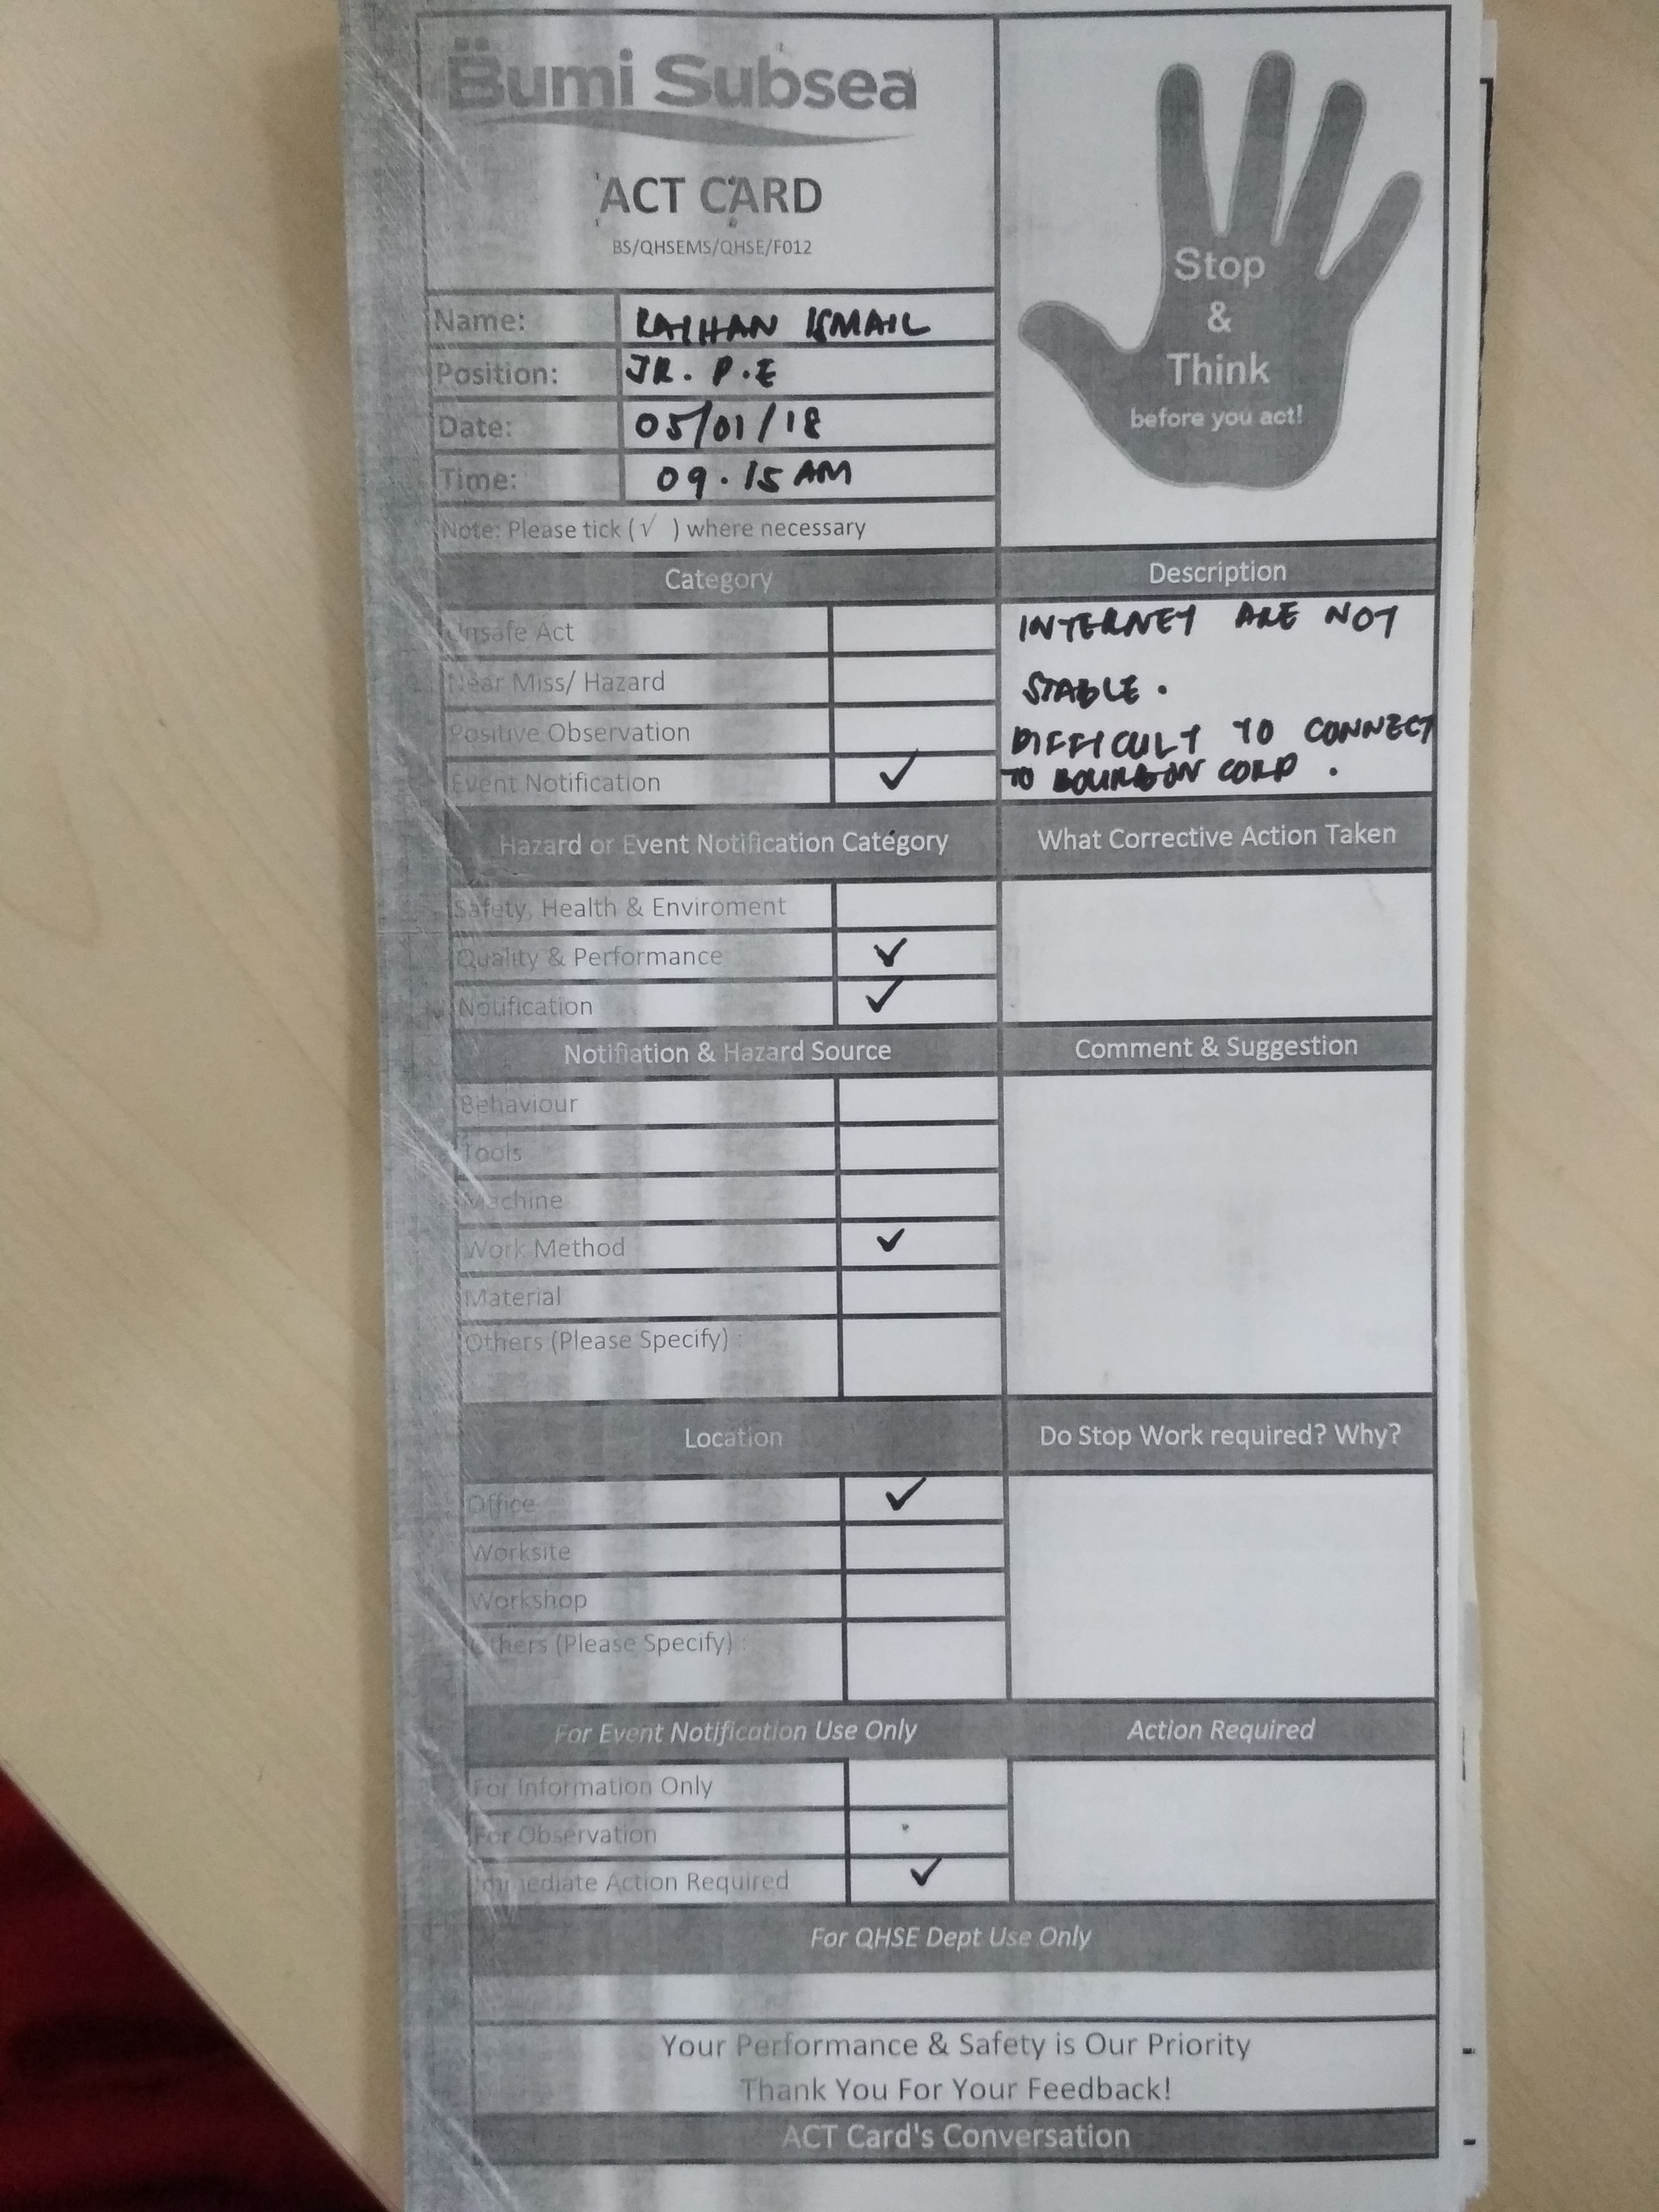 Bumi Subsea
ACT CARD
BS/QHSEMS/QHSE/F012
Stop
&
Think
before you act!
Name: RAIHAN ISMAIL
Position: JR. P.E
Date: 05/01/18
Time: 09.15 AM
Note: Please tick (√ ) where necessary
Category
Unsafe Act
Near Miss/ Hazard
Positive Observation
Event Notification ✓
Description
INTERNET ARE NOT
STABLE.
DIFFICULT TO CONNECT
TO BOURBON CORP.
Hazard or Event Notification Category
Safety, Health & Enviroment
Quality & Performance ✓
Notification ✓
What Corrective Action Taken
Notifiation & Hazard Source
Behaviour
Tools
Machine
Work Method ✓
Material
Others (Please Specify) :
Comment & Suggestion
Location
Office ✓
Worksite
Workshop
Others (Please Specify) :
Do Stop Work required? Why?
For Event Notification Use Only
For Information Only
For Observation
Immediate Action Required ✓
Action Required
For QHSE Dept Use Only
Your Performance & Safety is Our Priority
Thank You For Your Feedback!
ACT Card's Conversation